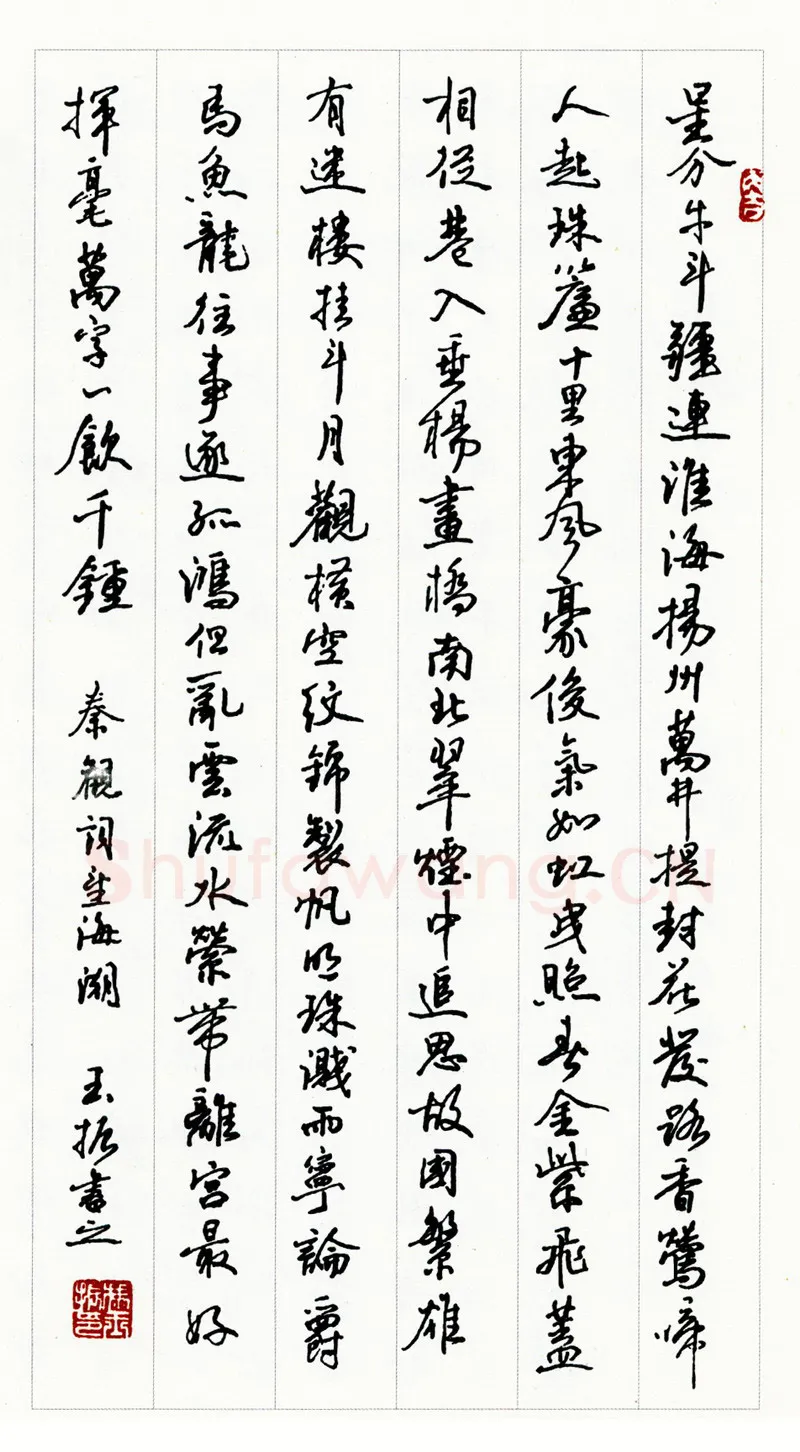 星分牛斗疆連淮海揚州萬井提封花發路香鶯啼
人起珠簾十里東風豪俊氣如虹曳照春金紫飛蓋
相從巷入垂楊畫橋南北翠煙中追思故國繁雄
有迷樓挂斗月觀橫空紋錦製帆明珠濺雨寧論爵
馬魚龍往事逐孤鴻但亂雲流水縈帶離宮最好
揮毫萬字一飲千鍾 秦觀詞望海潮 玉振書之
Shufawang.CN